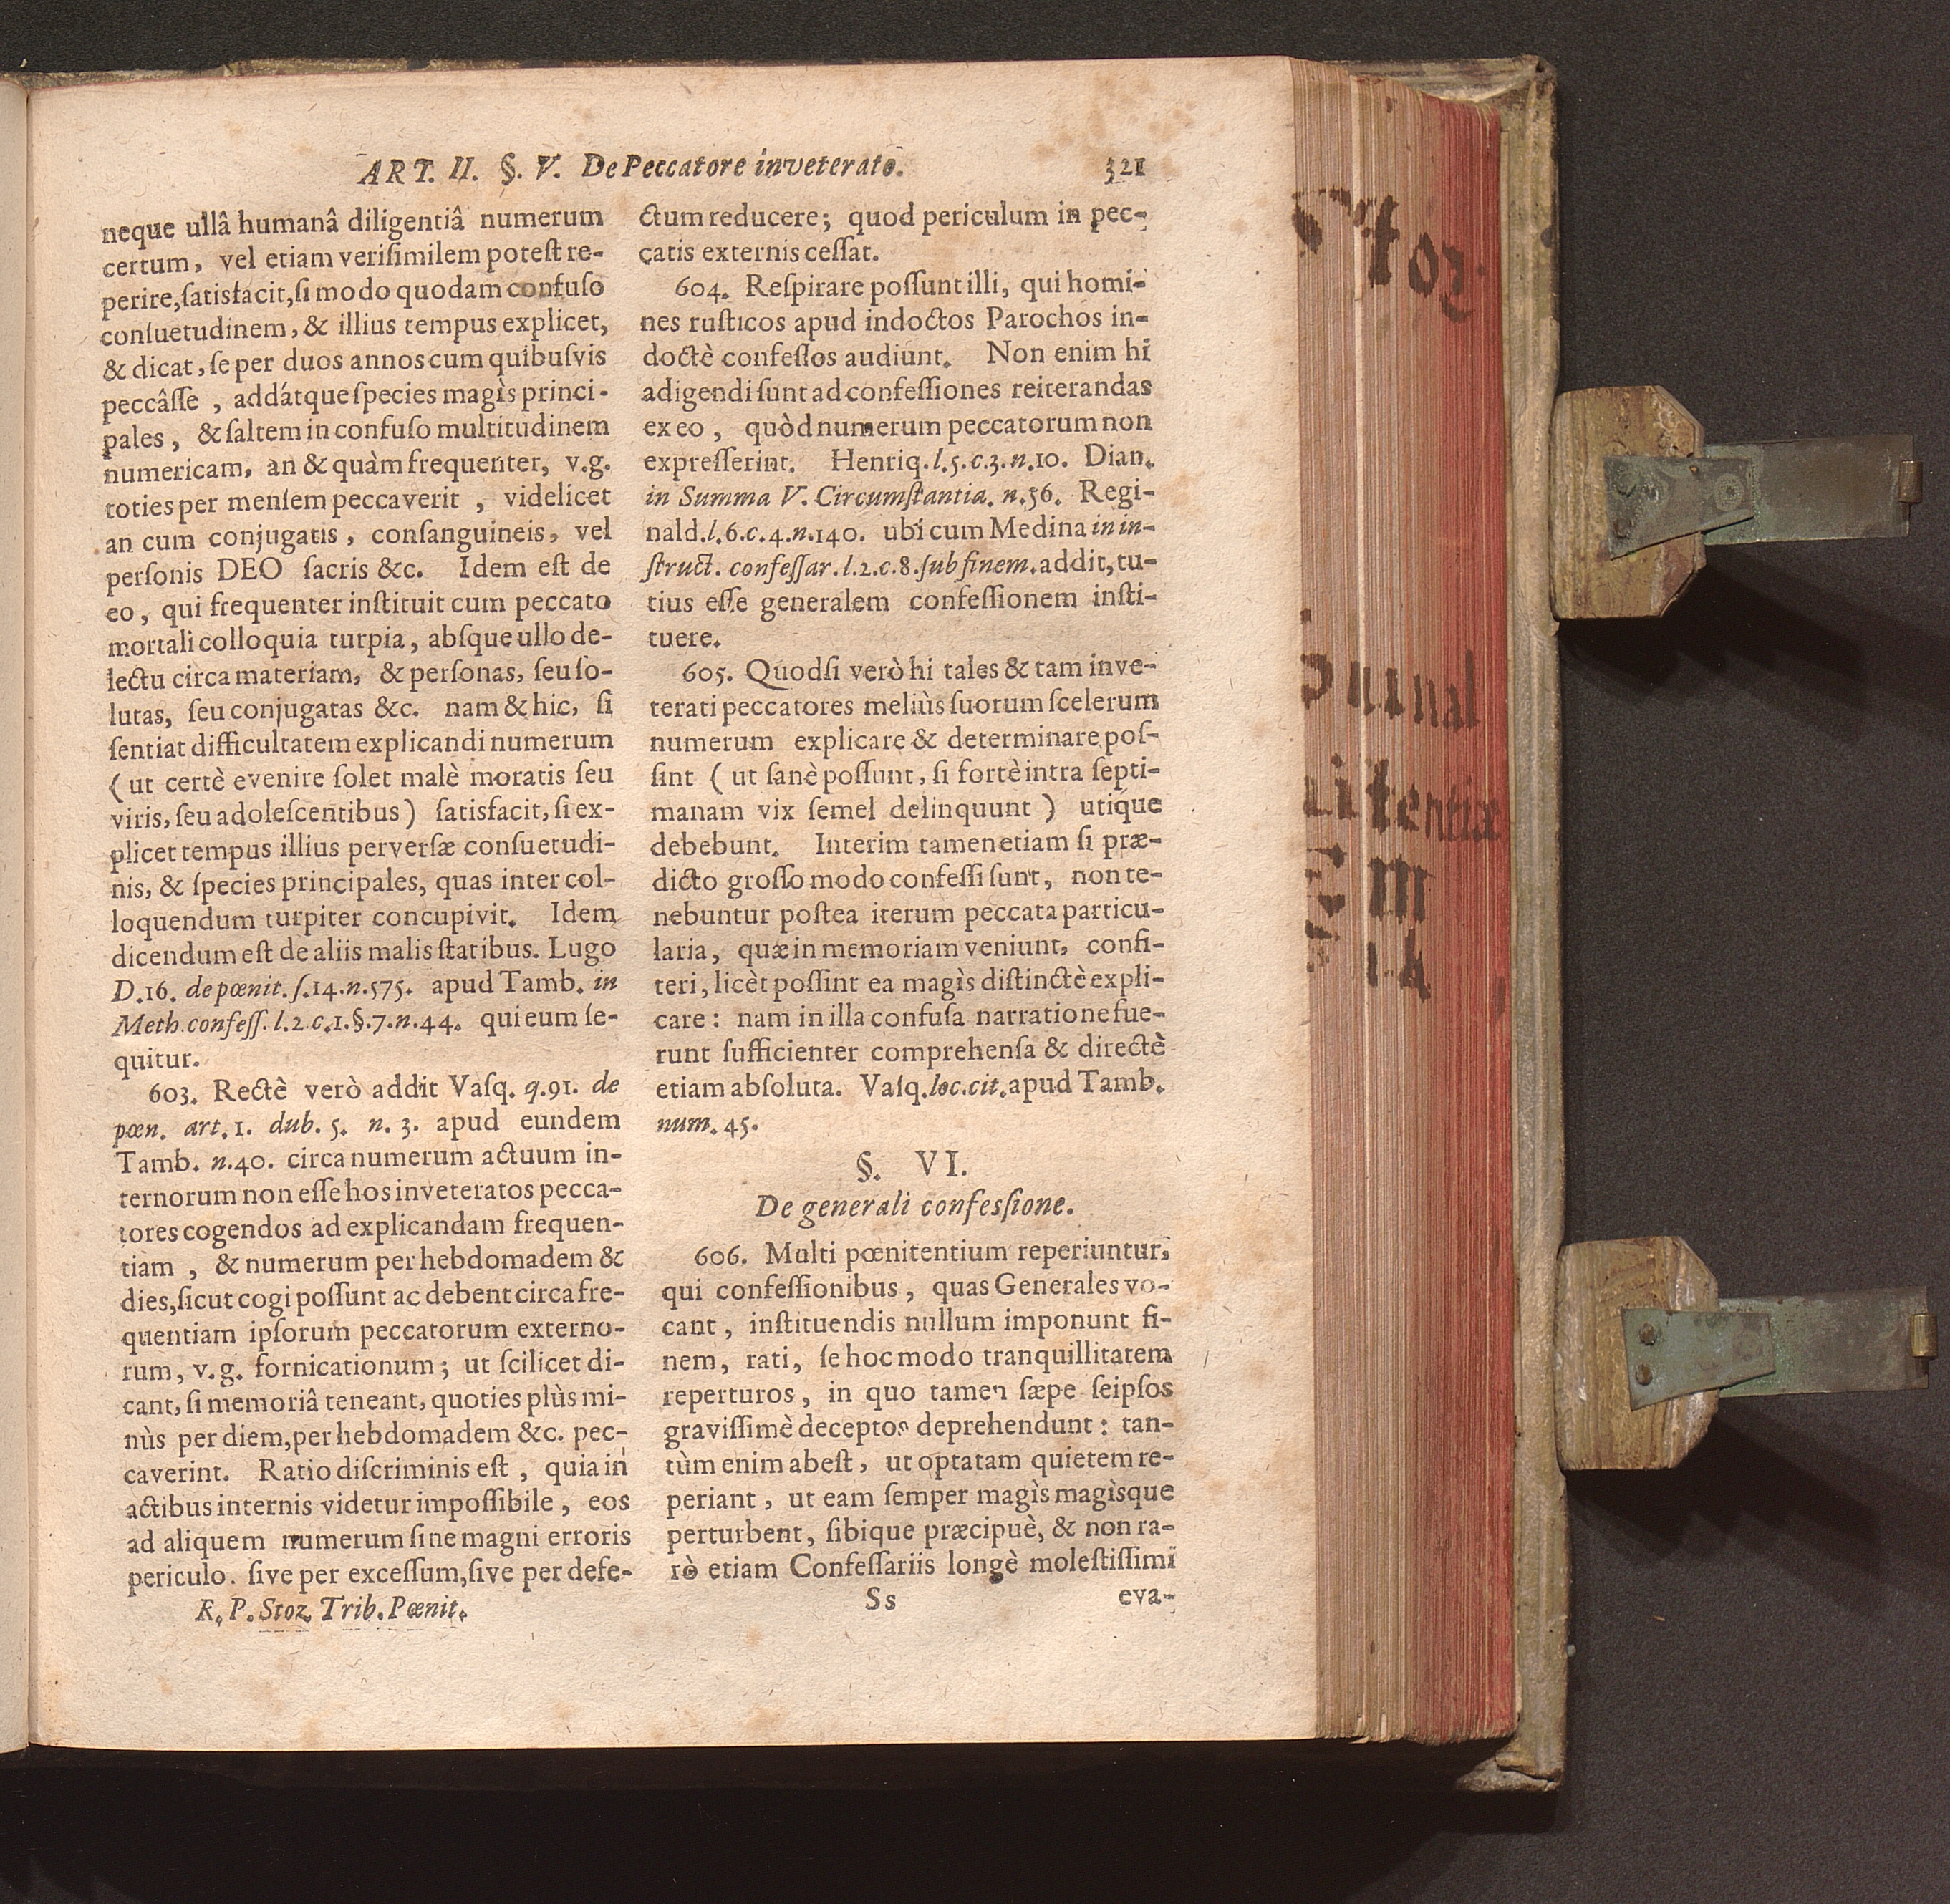 ART. II. §. V. De Peccatore inveterato. 321
neque ullâ humanâ diligentiâ numerum
certum, vel etiam veriſimilem poteſt re-
perire, ſatisfacit, ſi modo quodam confuſo
conſuetudinem, & illius tempus explicet,
& dicat, ſe per duos annos cum quibuſvis
peccâſſe, addátque ſpecies magìs princi-
pales, & ſaltem in confuſo multitudinem
numericam, an & quàm frequenter, v.g.
toties per menſem peccaverit, videlicet
an cum conjugatis, conſanguineis, vel
perſonis DEO ſacris &c. Idem eſt de
eo, qui frequenter inſtituit cum peccato
mortali colloquia turpia, abſque ullo de-
lectu circa materiam, & perſonas, ſeu ſo-
lutas, ſeu conjugatas &c. nam & hic, ſi
ſentiat difficultatem explicandi numerum
(ut certè evenire ſolet malè moratis ſeu
viris, ſeu adoleſcentibus) ſatisfacit, ſi ex-
plicet tempus illius perverſæ conſuetudi-
nis, & ſpecies principales, quas inter col-
loquendum turpiter concupivit. Idem
dicendum eſt de aliis malis ſtatibus. Lugo
D.16. de pœnit. ſ.14.n.575. apud Tamb. in
Meth. confeſſ. l.2.c.1.§.7.n.44. qui eum ſe-
quitur.
603. Rectè verò addit Vaſq. q.91. de
pœn. art. 1. dub. 5. n. 3. apud eundem
Tamb. n.40. circa numerum actuum in-
ternorum non eſſe hos inveteratos pecca-
tores cogendos ad explicandam frequen-
tiam, & numerum per hebdomadem &
dies, ſicut cogi poſſunt ac debent circa fre-
quentiam ipſorum peccatorum externo-
rum, v.g. fornicationum; ut ſcilicet di-
cant, ſi memoriâ teneant, quoties plùs mi-
nùs per diem, per hebdomadem &c. pec-
caverint. Ratio diſcriminis eſt, quia in
actibus internis videtur impoſſibile, eos
ad aliquem numerum ſine magni erroris
periculo. ſive per exceſſum, ſive per defe-
R. P. Stoz. Trib. Pœnit.
ctum reducere; quod periculum in pec-
catis externis ceſſat.
604. Reſpirare poſſunt illi, qui homi-
nes ruſticos apud indoctos Parochos in-
doctè confeſſos audiunt. Non enim hi
adigendi ſunt ad confeſſiones reiterandas
ex eo, quòd numerum peccatorum non
expreſſerint. Henriq. l.5.c.3.n.10. Dian.
in Summa V. Circumſtantia. n.56. Regi-
nald. l.6.c.4.n.140. ubi cum Medina in in-
ſtruct. confeſſar. l.2.c.8. ſub finem. addit, tu-
tius eſſe generalem confeſſionem inſti-
tuere.
605. Quodſi verò hi tales & tam inve-
terati peccatores meliùs ſuorum ſcelerum
numerum explicare & determinare poſ-
ſint (ut ſanè poſſunt, ſi fortè intra ſepti-
manam vix ſemel delinquunt) utique
debebunt. Interim tamen etiam ſi præ-
dicto groſſo modo confeſſi ſunt, non te-
nebuntur poſtea iterum peccata particu-
laria, quæ in memoriam veniunt, confi-
teri, licèt poſſint ea magìs diſtinctè expli-
care: nam in illa confuſa narratione fue-
runt ſufficienter comprehenſa & directè
etiam abſoluta. Vaſq. loc. cit. apud Tamb.
num. 45.
§. VI.
De generali confeſſione.
606. Multi pœnitentium reperiuntur,
qui confeſſionibus, quas Generales vo-
cant, inſtituendis nullum imponunt fi-
nem, rati, ſe hoc modo tranquillitatem
reperturos, in quo tamen ſæpe ſeipſos
graviſſimè deceptos deprehendunt: tan-
tùm enim abeſt, ut optatam quietem re-
periant, ut eam ſemper magìs magìsque
perturbent, ſibique præcipuè, & non ra-
rò etiam Confeſſariis longè moleſtiſſimi
Ss eva-